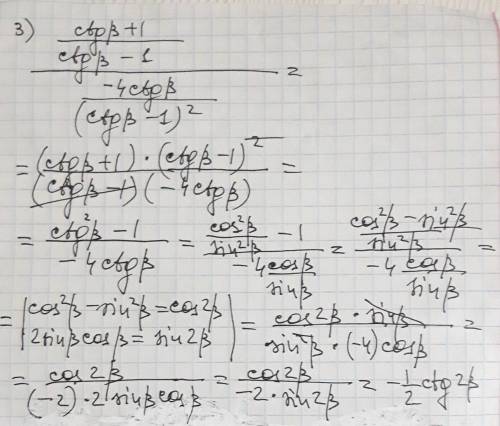 3) ((ctgβ+1)/(ctgβ-1))/((-4ctgβ)/(ctgβ-1)²) =
= ((ctgβ+1)·(ctgβ-1)²)/((ctgβ-1)(-4ctgβ)) =
= (ctg²β-1)/(-4ctgβ) = (cos²β/sin²β - 1)/(-4 cosβ/sinβ) = ((cos²β-sin²β)/sin²β)/(-4 cosβ/sinβ) =
= |cos²β-sin²β=cos2β
2sinβcosβ=sin2β| = (cos2β·sinβ)/(sin²β·(-4)cosβ) =
= cos2β/((-2)·2sinβcosβ) = cos2β/(-2·sin2β) = -1/2 ctg2β